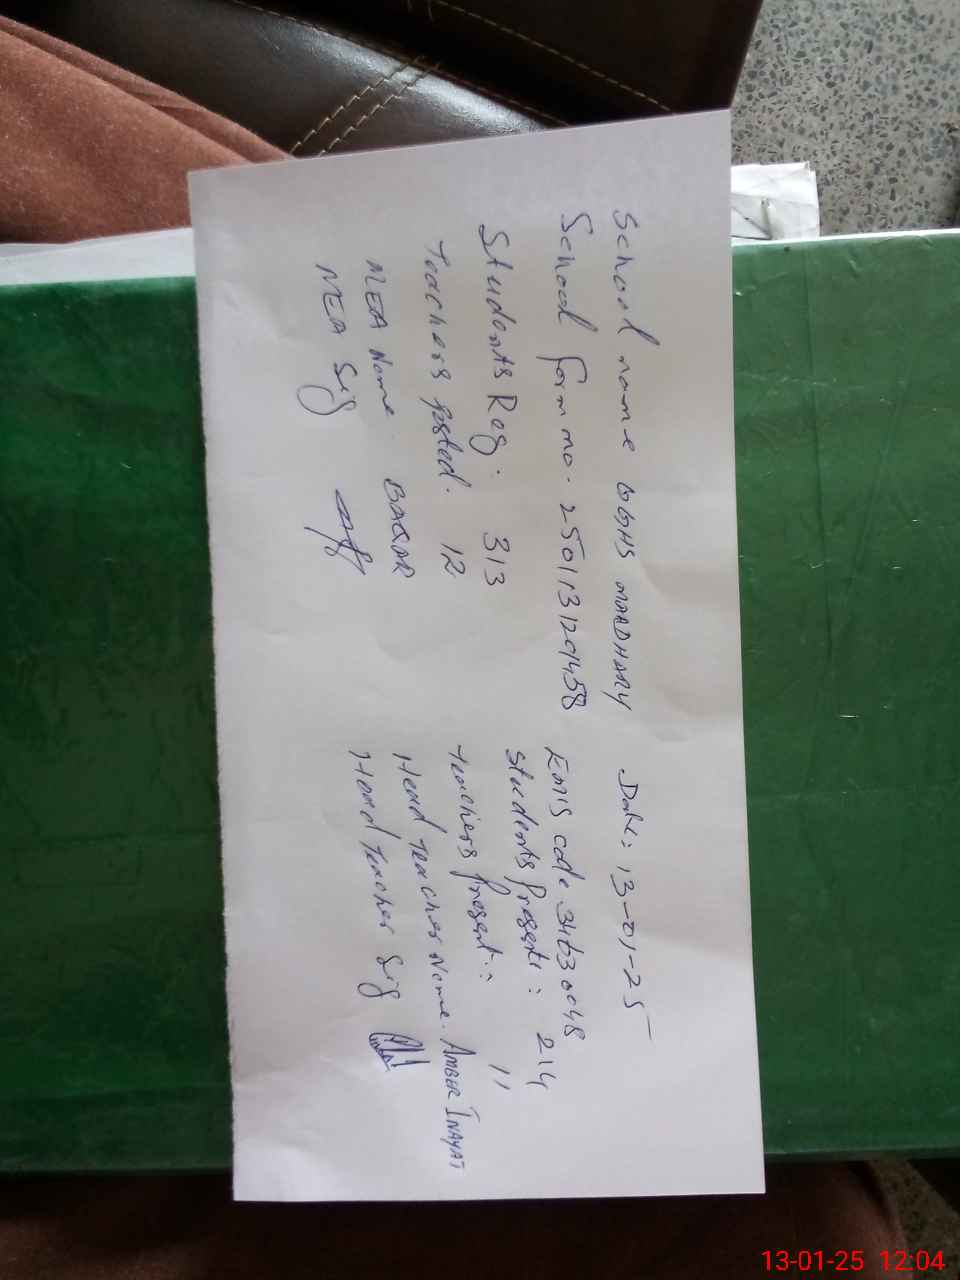 School name GGHS MAADHARY Date: 13-01-25
School form no. 250113129458 EMIS code 34630048
Students Reg. 313 Students Present: 214
Teachers posted. 12 Teachers present.: 11
MEA Name. BAQAR Head Teacher Name. AMBER INAYAT
MEA Sig Head Teacher Sig
13-01-25 12:04